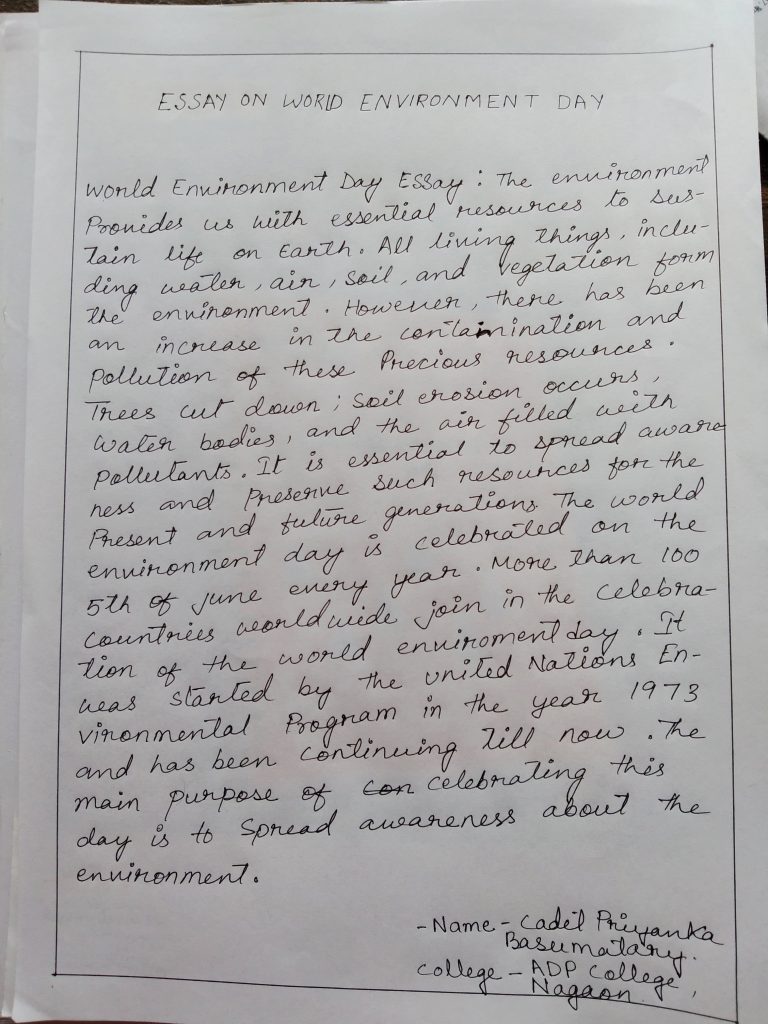 ESSAY ON WORLD ENVIRONMENT DAY
World Environment Day Essay : The environment
Provides us with essential resources to sus-
tain life on Earth. All living things, inclu-
ding water, air, soil, and vegetation form
the environment. However, there has been
an increase in the contamination and
pollution of these Precious resources.
Trees cut down; soil erosion occurs,
water bodies, and the air filled with
pollutants. It is essential to spread aware
ness and Preserve such resources for the
Present and future generations. The world
environment day is celebrated on the
5th of june every year. More than 100
countries worldwide join in the celebra-
tion of the world enviroment day. It
was started by the united Nations En-
vironmental Program in the year 1973
and has been continuing till now. The
main purpose of con celebrating this
day is to spread awareness about the
environment.
-Name - Cadet Priyanka
Basumatary.
College - ADP College,
Nagaon